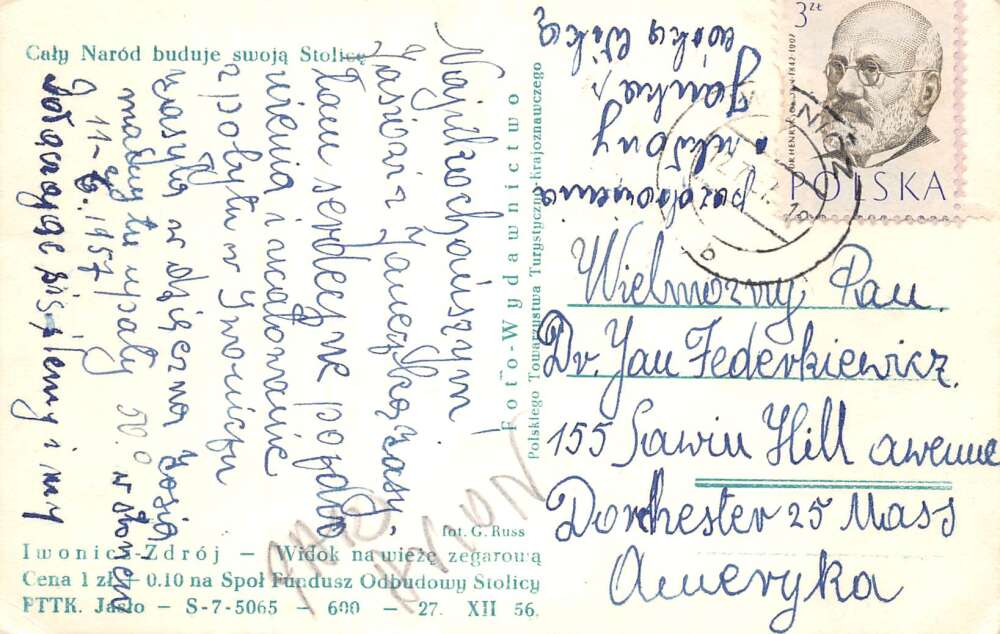 Cały Naród buduje swoją Stolicę
Najukochańszym
Jasiowi z Janeczką zasy
łam serdeczne pozdro
wienia i ucałowanie
z pobytu w Iwoniczu
zawsze wdzięczna Zosia
mamy tu upały 50.° w słońcu
11-go 1957
Dołączając się i my
pozdrowienia
Janka
Foto-Wydawnictwo
Polskiego Towarzystwa Turystyczno Krajoznawczego
3 ZŁ
DR HENRYK 1842-1907
POLSKA
Wielmożny Pan
Dr. Jan Federkiewicz.
155 Savin Hill awenue
Dorchester 25 Mass
Ameryka
fot. G. Russ
Iwonicz-Zdrój — Widok na wieżę zegarową
Cena 1 zł — 0.10 na Społ Fundusz Odbudowy Stolicy
PTTK. Jasło — S-7-5065 — 600 — 27. XII 56.